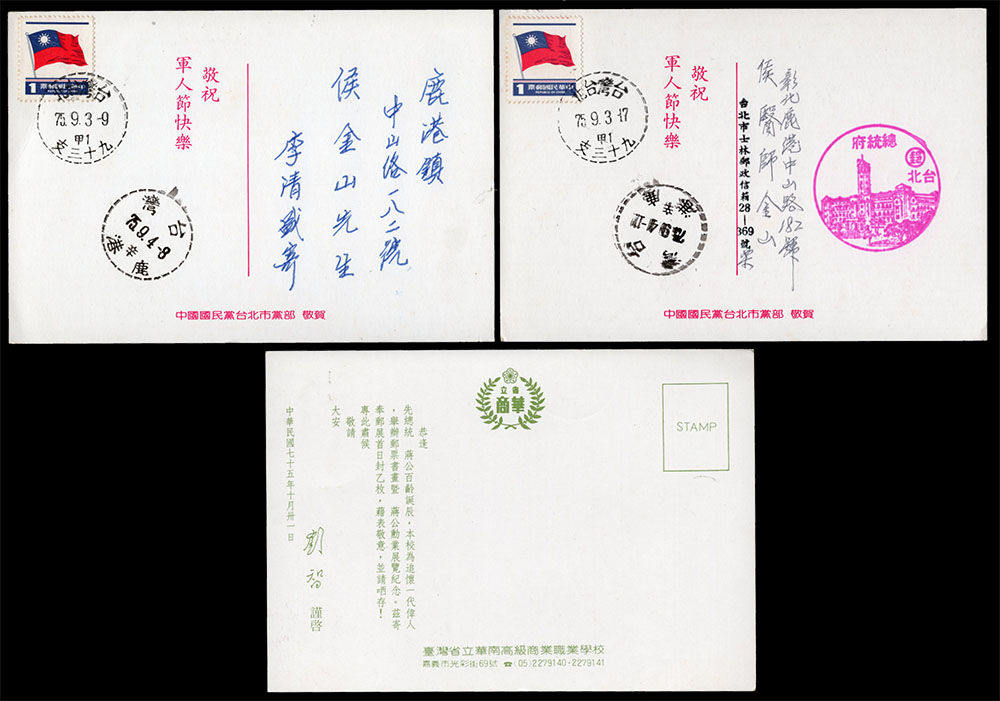 1
中華民國郵票
REPUBLIC OF CHINA
台灣台北
75.9.3-9
甲1
九十三支
敬祝
軍人節快樂
鹿港鎮
中山路一八二號
侯金山先生
李清盛寄
台灣
75.9.4-8
辛
鹿港
中國國民黨台北市黨部 敬賀
1
中華民國郵票
REPUBLIC OF CHINA
台灣台北
75.9.3-17
甲1
九十三支
敬祝
軍人節快樂
彰化鹿港中山路182號
侯醫師金山
台北市士林郵政信箱28—869號
總統府
郵
台北
台灣
75.9.4-12
辛
鹿港
中國國民黨台北市黨部 敬賀
省立
華商
STAMP
恭逢
先總統 蔣公百齡誕辰,本校為追懷一代偉人
,舉辦郵票書畫暨 蔣公勳業展覽紀念。茲寄
奉郵展首日封乙枚,藉表敬意,並請哂存!
專此肅候
敬請
大安
劉智 謹啓
中華民國七十五年十月卅一日
臺灣省立華南高級商業職業學校
嘉義市光彩街69號 ☎(05)2279140-2279141